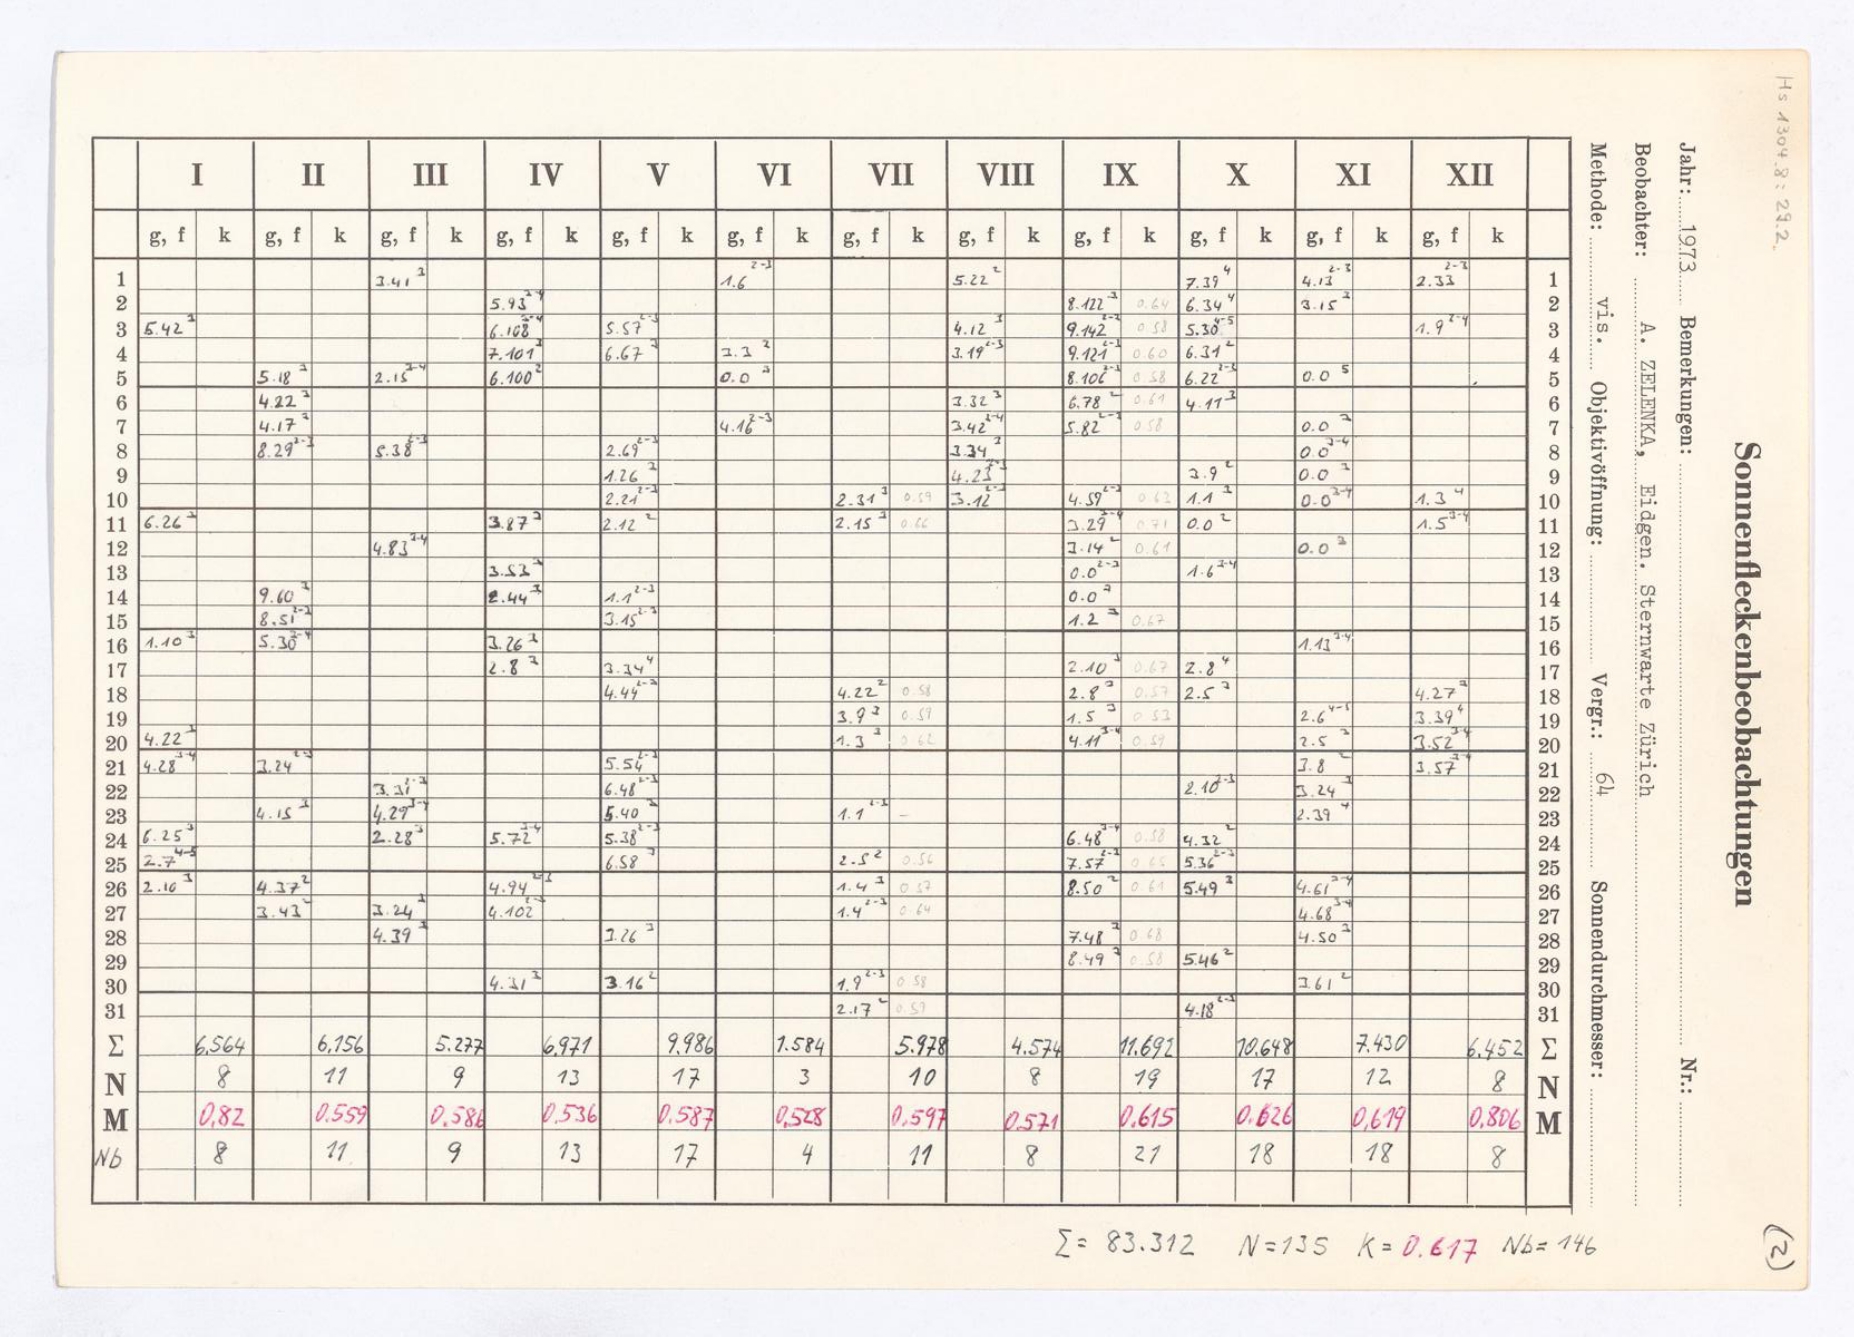 Hs 1304.8:29.2
Sonnenfleckenbeobachtungen
Jahr: 1973 Bemerkungen: Nr.:
Beobachter: A. ZELENKA, Eidgen. Sternwarte Zürich
Methode: vis. Objektivöffnung: Vergr.: 64 Sonnendurchmesser:
I II III IV V VI VII VIII IX X XI XII
g, f k g, f k g, f k g, f k g, f k g, f k g, f k g, f k g, f k g, f k g, f k g, f k
1 3.41³ 1.6²⁻³ 5.22² 7.39⁴ 4.13²⁻³ 2.33²⁻³ 1
2 5.93³⁻⁴ 8.122³ 0.64 6.34⁴ 3.15³ 2
3 5.42³ 6.108³⁻⁴ 5.57²⁻³ 4.12³ 9.142²⁻³ 0.58 5.30⁴⁻⁵ 1.9²⁻⁴ 3
4 7.101³ 6.67³ 3.3² 3.19²⁻³ 9.121²⁻³ 0.60 6.31² 4
5 5.18³ 2.15³⁻⁴ 6.100² 0.0³ 8.106²⁻³ 0.58 6.22²⁻³ 0.0⁵ 5
6 4.22³ 3.32³ 6.78² 0.61 4.11³ 6
7 4.17³ 4.16²⁻³ 3.42²⁻⁴ 5.82²⁻³ 0.58 0.0³ 7
8 8.29²⁻³ 5.38²⁻³ 2.69²⁻³ 3.34³ 0.0³⁻⁴ 8
9 1.26³ 4.23²⁻³ 3.9² 0.0³ 9
10 2.21²⁻³ 2.31³ 0.59 3.12²⁻³ 4.59²⁻³ 0.62 1.1³ 0.0³⁻⁴ 1.3⁴ 10
11 6.26³ 3.87³ 2.12² 2.15³ 0.66 3.29³⁻⁴ 0.71 0.0² 1.5³⁻⁴ 11
12 4.83³⁻⁴ 3.14² 0.61 0.0³ 12
13 3.53³ 0.0²⁻³ 1.6³⁻⁴ 13
14 9.60³ 2.44³ 1.1²⁻³ 0.0³ 14
15 8.51²⁻³ 3.15²⁻³ 1.2³ 0.67 15
16 1.10³ 5.30³⁻⁴ 3.26³ 1.13³⁻⁴ 16
17 2.8³ 3.34⁴ 2.10³ 0.67 2.8⁴ 17
18 4.44²⁻³ 4.22² 0.58 2.8³ 0.57 2.5³ 4.27³ 18
19 3.9³ 0.59 1.5³ 0.53 2.6⁴⁻⁵ 3.39⁴ 19
20 4.22³ 1.3³ 0.62 4.11³⁻⁴ 0.59 2.5³ 3.52³⁻⁴ 20
21 4.28³⁻⁴ 3.24²⁻³ 5.54²⁻³ 3.8² 3.57³⁻⁴ 21
22 3.31²⁻³ 6.48²⁻³ 2.10²⁻³ 3.24³ 22
23 4.15³ 4.29³⁻⁴ 5.40³ 1.1²⁻³ – 2.39⁴ 23
24 6.25³ 2.28³ 5.72³⁻⁴ 5.38²⁻³ 6.48³⁻⁴ 0.58 4.32² 24
25 2.7⁴⁻⁵ 6.58³ 2.5² 0.56 7.57²⁻³ 0.65 5.36²⁻³ 25
26 2.10³ 4.37² 4.94²⁻³ 1.4³ 0.57 8.50² 0.61 5.49³ 4.61³⁻⁴ 26
27 3.43² 3.24³ 4.102²⁻³ 1.4²⁻³ 0.64 4.68³⁻⁴ 27
28 4.39³ 3.26³ 7.48³ 0.68 4.50³ 28
29 8.49³ 0.58 5.46² 29
30 4.31³ 3.16² 1.9²⁻³ 0.58 3.61² 30
31 2.17² 0.59 4.18²⁻³ 31
Σ 6,564 6,156 5.277 6,971 9.986 1.584 5.978 4.574 11.692 10.648 7.430 6.452 Σ
N 8 11 9 13 17 3 10 8 19 17 12 8 N
M 0,82 0.559 0.586 0.536 0.587 0,528 0.597 0.571 0.615 0.626 0,619 0,806 M
Nb 8 11 9 13 17 4 11 8 21 18 18 8
Σ = 83.312 N = 135 K = 0.617 Nb = 146
(2)